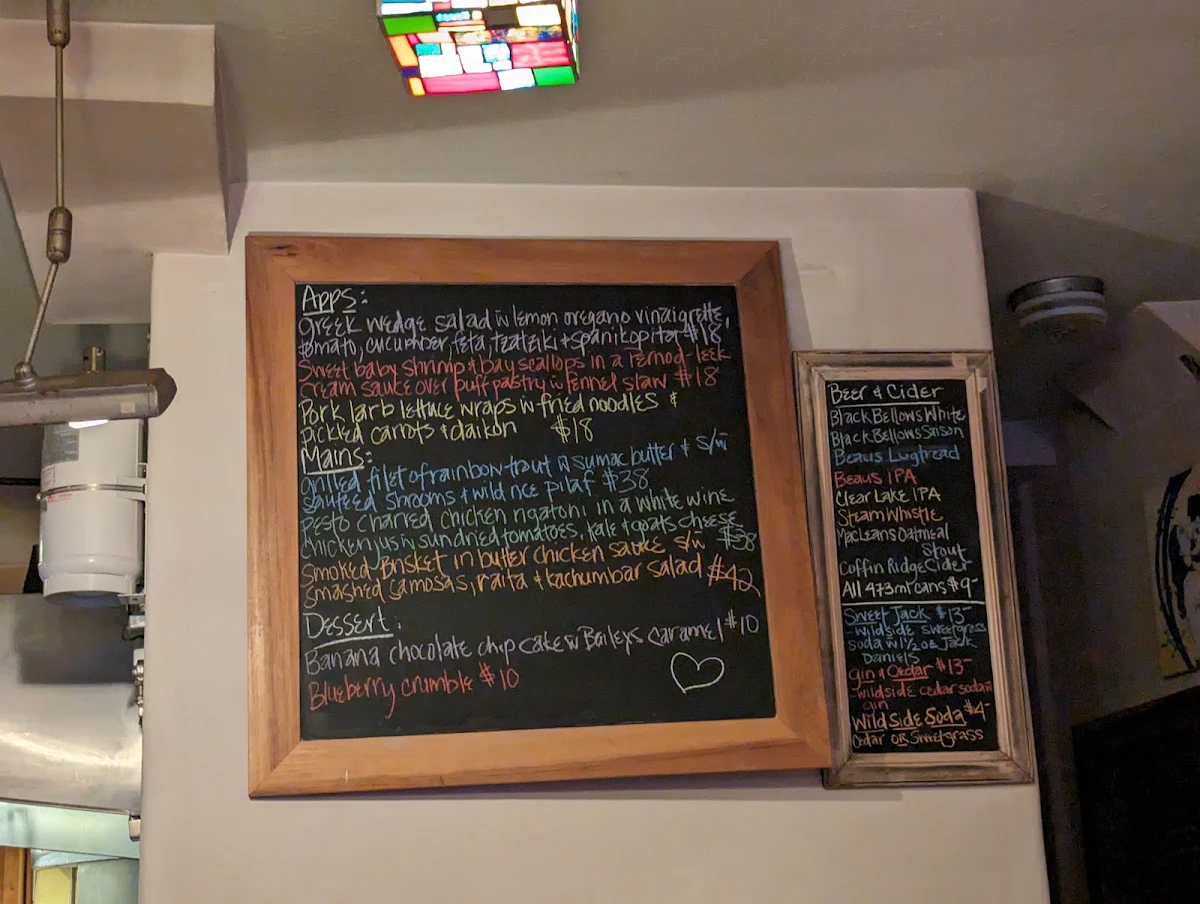 Apps:
Greek wedge salad w lemon oregano vinaigrette,
tomato, cucumber, feta, tzatziki + spanikopita $18
Sweet baby shrimp & bay scallops in a Pernod-leek
cream sauce over puff pastry w fennel slaw $18
Pork larb lettuce wraps w fried noodles &
pickled carrots + daikon $18
Mains:
Grilled filet of rainbow trout w sumac butter & s/w
sauteed shrooms + wild rice pilaf $38
Pesto charred chicken rigatoni in a white wine
chicken jus w sundried tomatoes, kale + goats cheese $38
Smoked Brisket in butter chicken sauce s/w
smashed samosas, raita + kachumbar salad $42
Dessert:
Banana chocolate chip cake w Baileys caramel $10
Blueberry crumble $10
Beer & Cider
Black Bellows White
Black Bellows Saison
Beaus Lugtread
Beaus IPA
Clear Lake IPA
Steam Whistle
MacLeans Oatmeal
Stout
Coffin Ridge Cider
All 473ml cans $9-
Sweet Jack $13-
-wildside sweetgrass
soda w 1/2oz Jack
Daniels
Gin & Cedar $13-
-wildside cedar soda w
gin
Wild Side Soda $4-
Cedar OR Sweetgrass